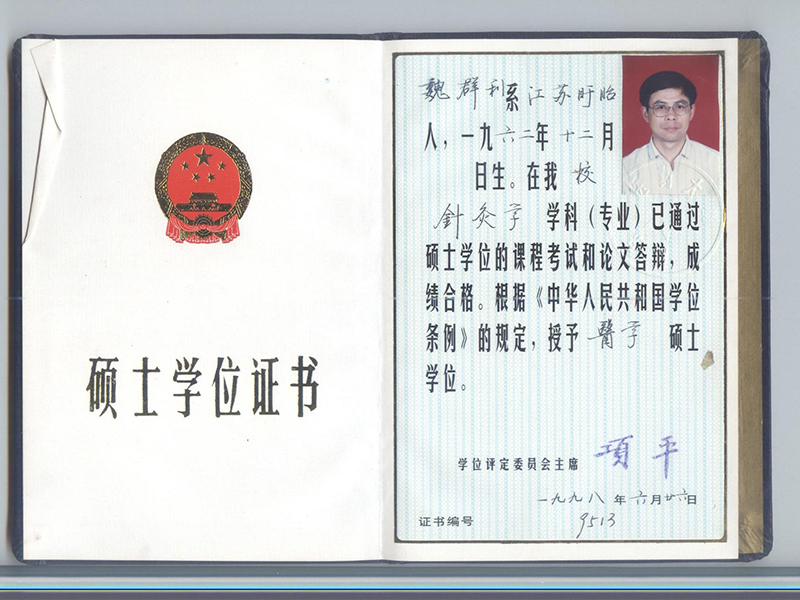 硕士学位证书
魏群利系江苏盱眙
人，一九六二年十二月
日生。在我校
針灸学学科（专业）已通过
硕士学位的课程考试和论文答辩，成
绩合格。根据《中华人民共和国学位
条例》的规定，授予醫学硕士
学位。
学位评定委员会主席 項平
一九九八年六月廿六日
证书编号 9513